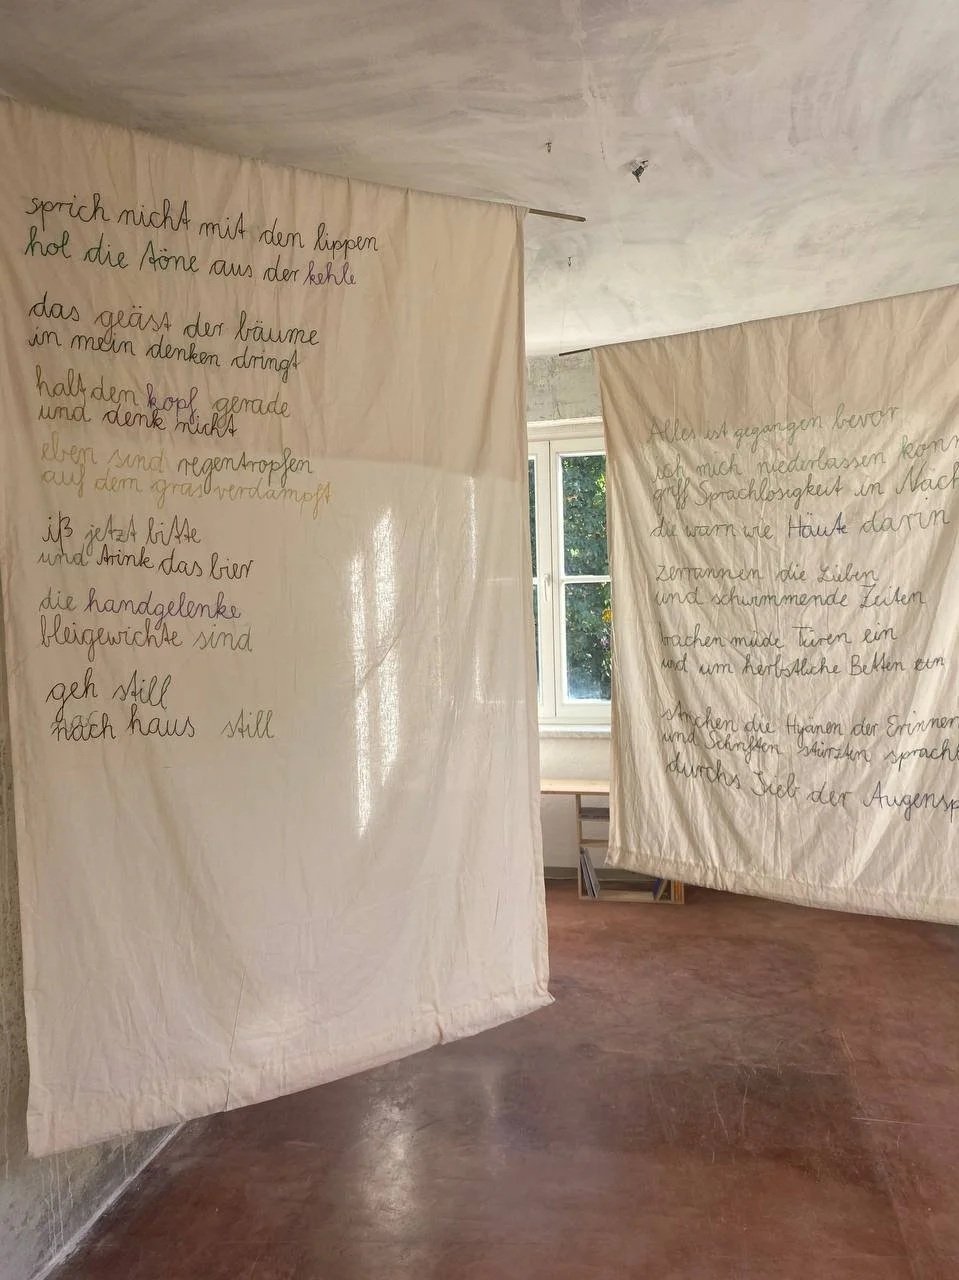 sprich nicht mit den lippen
hol die töne aus der kehle
das geäst der bäume
in mein denken dringt
halt den kopf gerade
und denk nicht
eben sind regentropfen
auf dem gras verdampft
iß jetzt bitte
und trink das bier
die handgelenke
bleigewichte sind
geh still
nach haus still
Alles ist gegangen bevor
ich mich niederlassen konn
griff Sprachlosigkeit in Näch
die warn wie Häute darin
zerrannen die Lieben
und schwimmende Zeiten
brachen müde Türen ein
und um herbstliche Betten ein
strichen die Hyänen der Erinner
und Schriften stürzten sprachl
durchs Sieb der Augensp